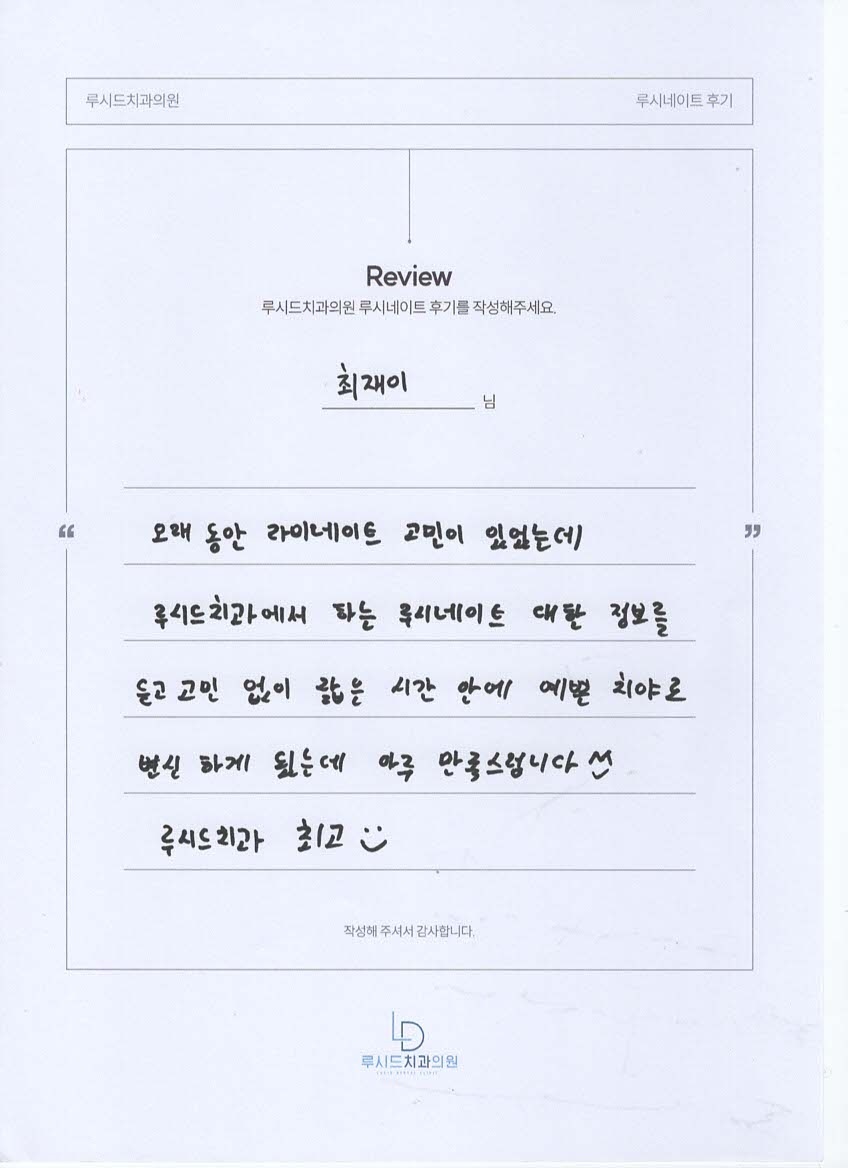 루시드치과의원 루시네이트 후기
Review
루시드치과의원 루시네이트 후기를 작성해주세요.
최재이 님
“ 오래 동안 라미네이트 고민이 있었는데 ”
루시드치과에서 하는 루시네이트 대한 정보를
듣고 고민 없이 짧은 시간 안에 예쁜 치아로
변신 하게 됬는데 아주 만족스럽니다 ^^
루시드치과 최고 :)
작성해 주셔서 감사합니다.
LD
루시드치과의원
LUCID DENTAL CLINIC